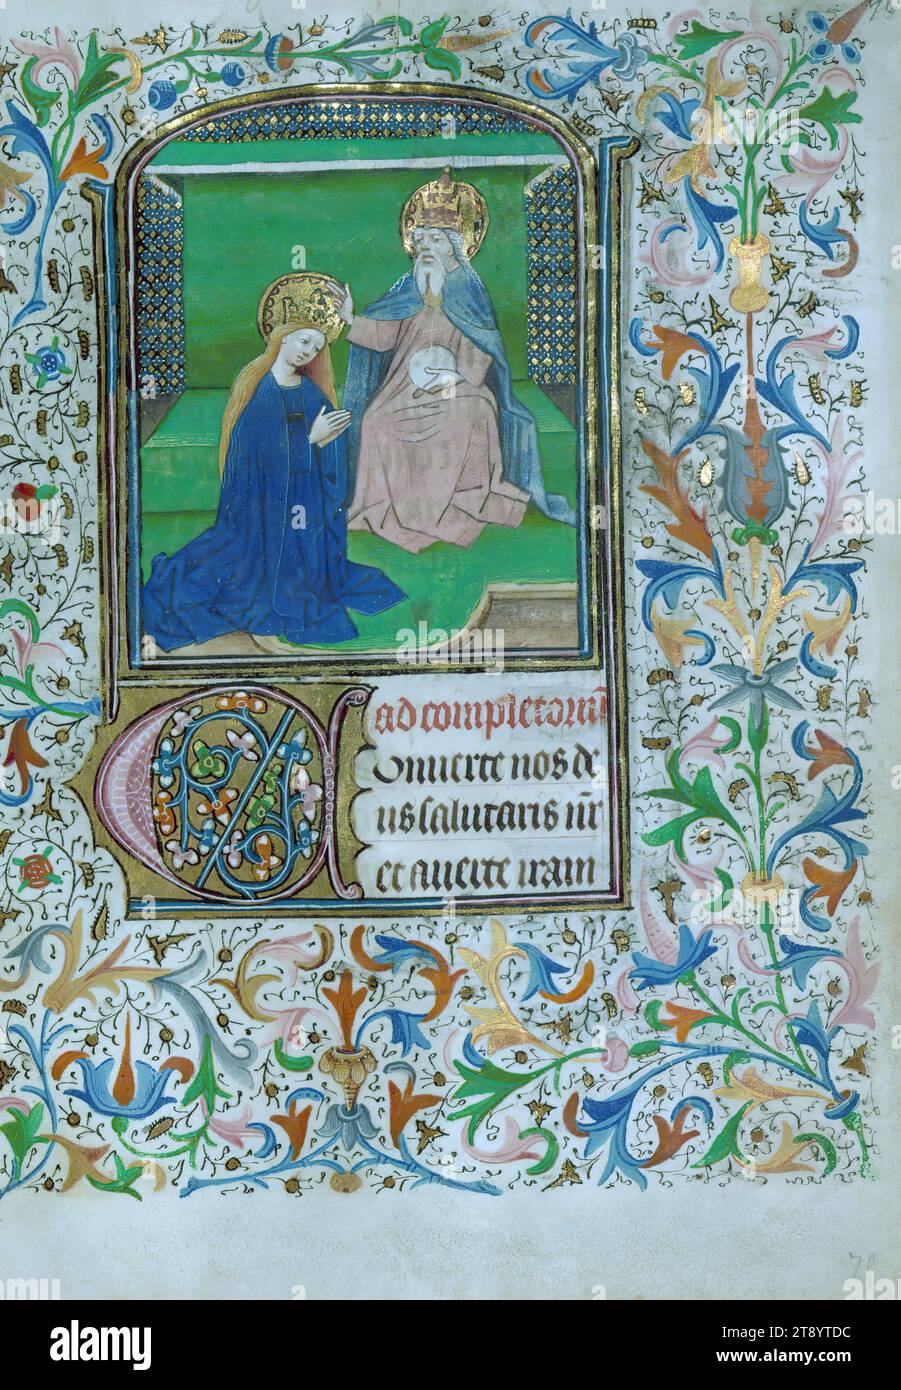 ad completoriū
Onuerte nos de
us salutaris nr̄
et auerte iram
70
alamy
Image ID: 2T8YTDC
www.alamy.com